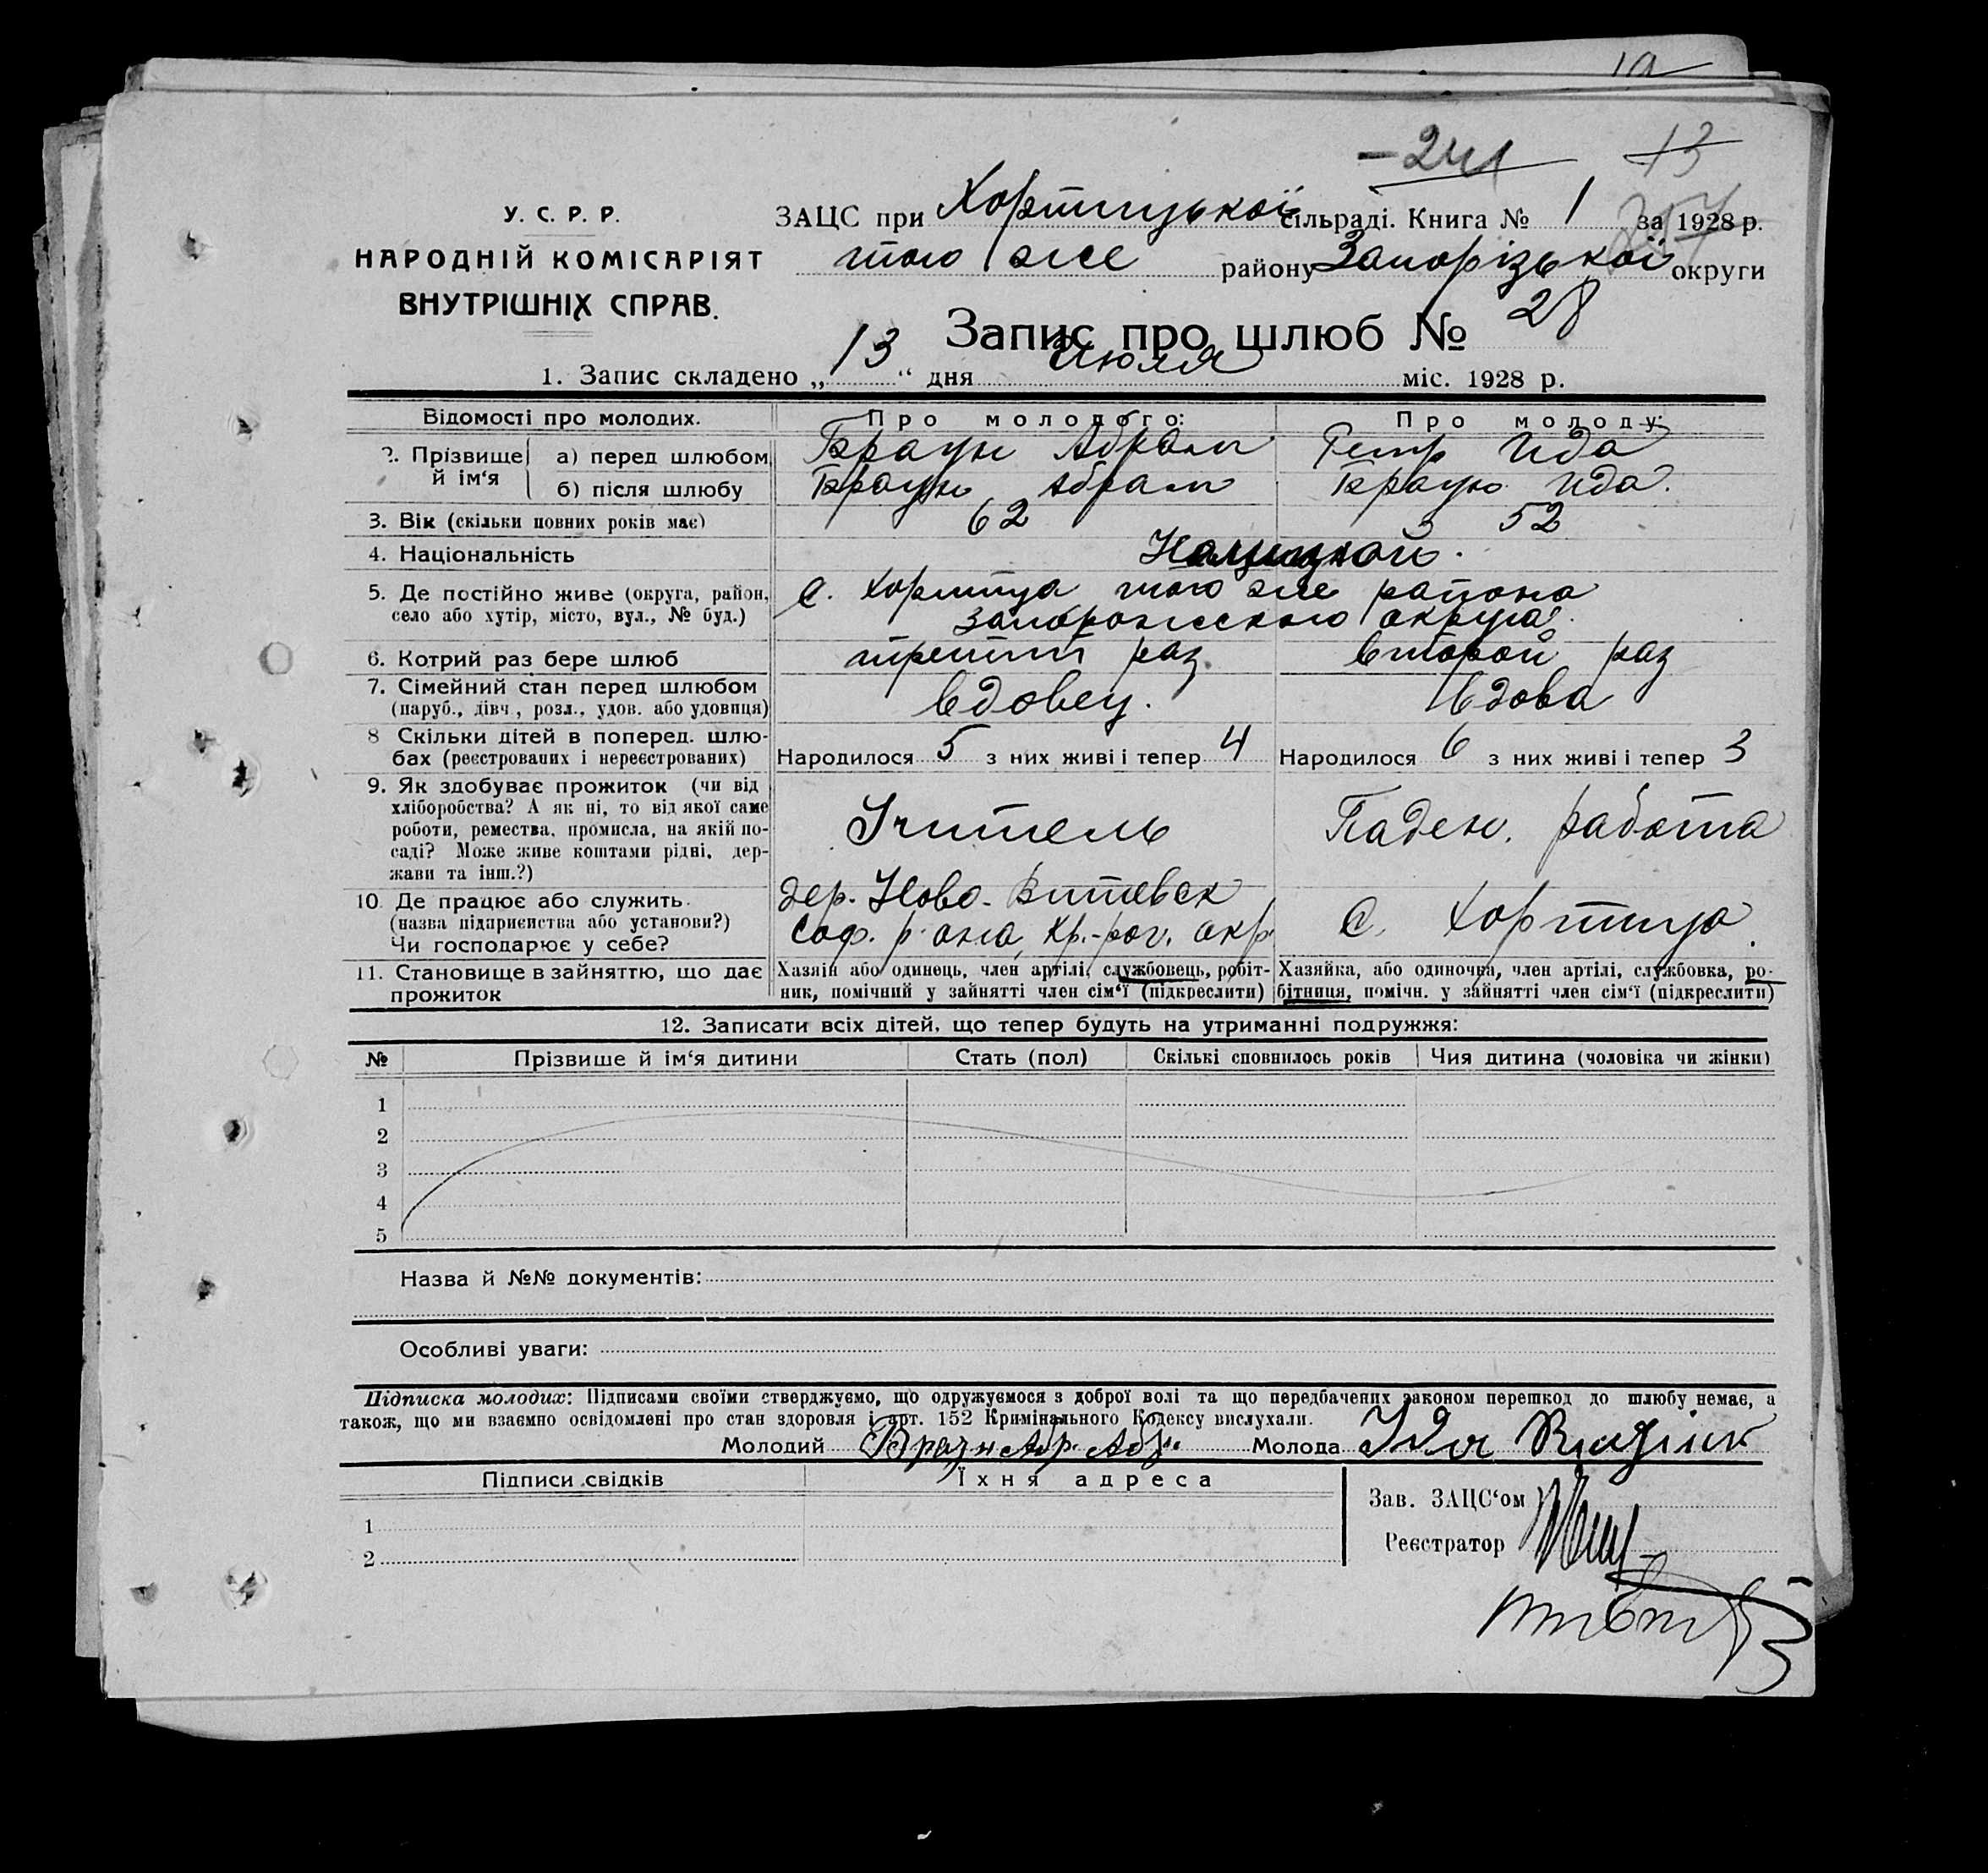 1а
-241
13
257
У. С. Р. Р.
НАРОДНІЙ КОМІСАРІЯТ
ВНУТРІШНІХ СПРАВ.
ЗАЦС при Хортицької сільраді. Книга № 1 за 1928 р.
того же району Запорізької округи
Запис про шлюб № 28
1. Запис складено „ 13 “ дня Июля міс. 1928 р.
Відомості про молодих. Про молодого: Про молоду:
2. Прізвище й ім‘я а) перед шлюбом Браун Абрам Ида
б) після шлюбу Браун Абрам Браун Ида.
3. Вік (скільки повних років має) 62 52
4. Національність
5. Де постійно живе (округа, район, село або хутір, місто, вул., № буд.) С. Хортица того же района
Запорожского округа.
6. Котрий раз бере шлюб третий раз второй раз
7. Сімейний стан перед шлюбом (паруб., дівч., розл., удов. або удовиця) вдовец. вдова
8 Скільки дітей в поперед. шлюбах (реєстрованих і нереєстрованих) Народилося 5 з них живі і тепер 4 Народилося 6 з них живі і тепер 3
9. Як здобуває прожиток (чи від
хліборобства? А як ні, то від якої саме
роботи, ремества, промисла, на якій по-
саді? Може живе коштами рідні, дер-
жави та інш.?)
Учитель Паден. работа
10. Де працює або служить.
(назва підприємства або установи?)
Чи господарює у себе?
дер. Ново-Витебск
Соф. р-она, Кр.-рог. окр. С. Хортица.
11. Становище в зайняттю, що дає
прожиток
Хазяїн або одинець, член артілі, службовець, робіт-
ник, помічний у зайнятті член сім‘ї (підкреслити)
Хазяйка, або одиночка, член артілі, службовка, ро-
бітниця, помічн. у зайнятті член сім‘ї (підкреслити)
12. Записати всіх дітей, що тепер будуть на утриманні подружжя:
№ Прізвише й ім‘я дитини Стать (пол) Скількі сповнилось років Чия дитина (чоловіка чи жінки)
1
2
3
4
5
Назва й №№ документів:
Особливі уваги:
Підписка молодих: Підписами своїми стверджуємо, що одружуємося з доброї волі та що передбачених законом перешкод до шлюбу немає, а
також, що ми взаємно освідомлені про стан здоровля і арт. 152 Кримінального Кодексу вислухали.
Молодий Браун Абр. Абр. Молода Ida
Підписи свідків Їхня адреса
Зав. ЗАЦС‘ом
1
Реєстратор
2